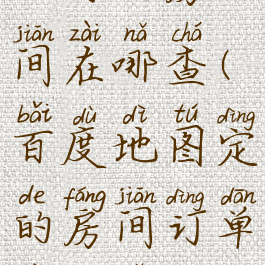 jiān zài nǎ chá
间在哪查(
bǎi dù dì tú dìng
百度地图定
de fáng jiān dìng dān
的房间订单